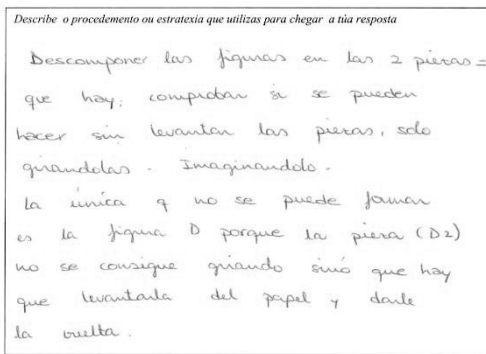 Describe o procedemento ou estratexia que utilizas para chegar a túa resposta
Descomponer las figuras en las 2 piezas =
que hay; comprobar si se pueden
hacer sin levantar las piezas, solo
girandolas. Imaginandolo.
La única q no se puede formar
es la figura D porque la pieza (D2)
no se consigue girando sinó que hay
que levantarla del papel y darle
la vuelta.